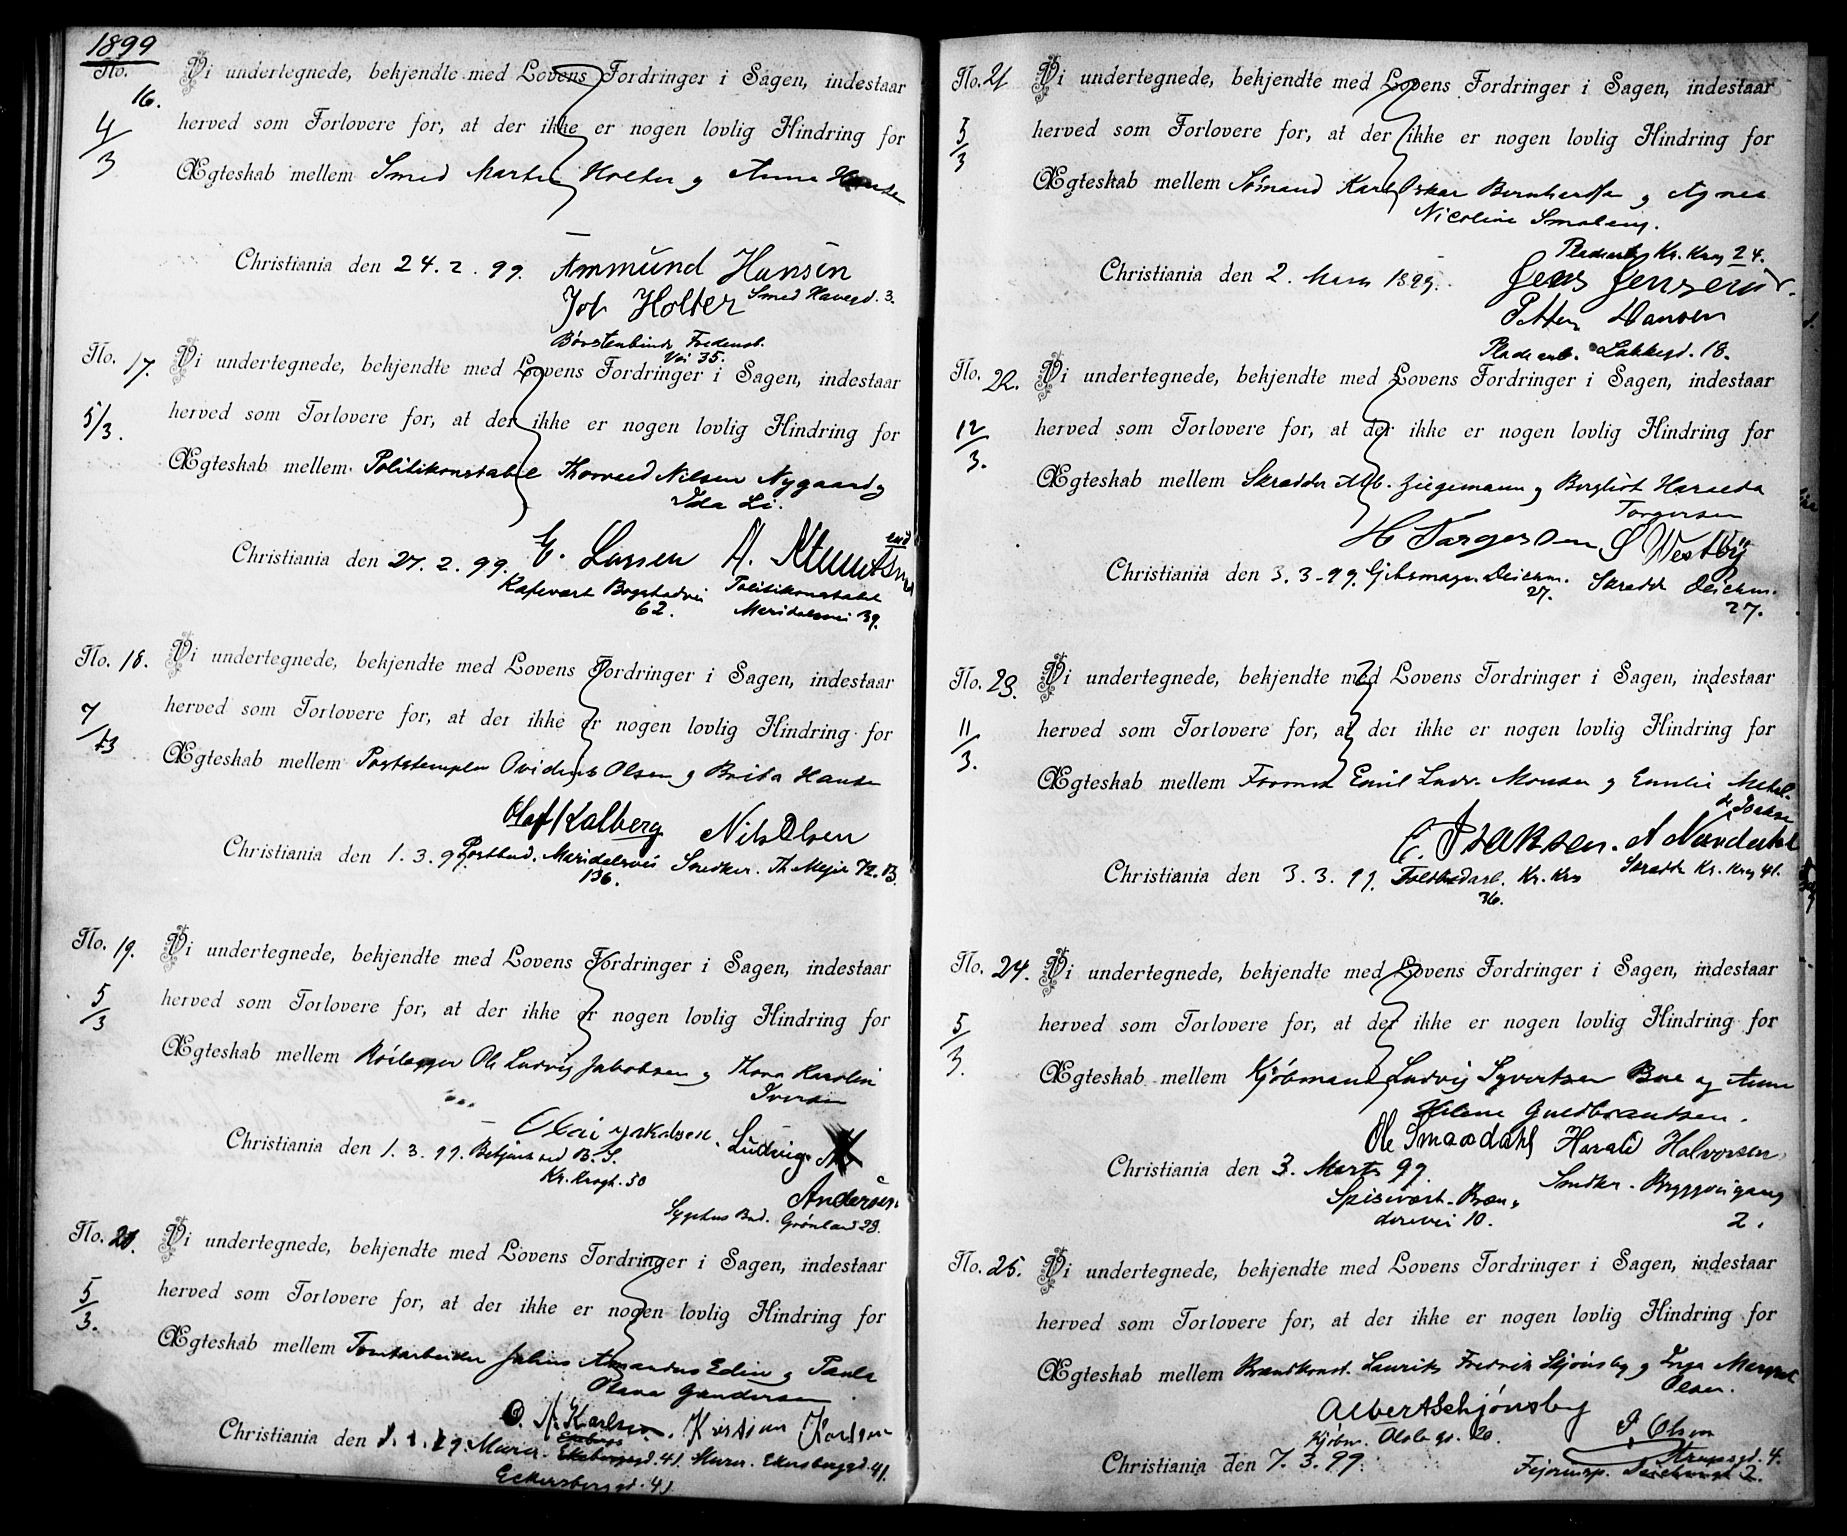 1899
No. 16. Vi undertegnede, bekjendte med Lovens Fordringer i Sagen, indestaar
4/3 herved som Forlovere for, at der ikke er nogen lovlig Hindring for
Ægteskab mellem Smed Martin Holter og Anna
Christiania den 24. 2. 99. Ammund Hansen
Smed Havegd. 3.
Joh Holter
Børstenbinder Fredensb.
Vei 35.
No. 17. Vi undertegnede, bekjendte med Lovens Fordringer i Sagen, indestaar
5/3. herved som Forlovere for, at der ikke er nogen lovlig Hindring for
Ægteskab mellem Politikonstabel Thorvald Nilsen Nygaard og
Ida Li.
Christiania den 27. 2. 99. E. Larsen A.
Kafevært Bogstadvei Politikonstabel
62. Maridalsvei 39.
No. 18. Vi undertegnede, bekjendte med Lovens Fordringer i Sagen, indestaar
7/3 herved som Forlovere for, at der ikke er nogen lovlig Hindring for
Ægteskab mellem Poststempler Olsen og Brita Hansen
Olaf Kalberg Nils Olsen
Christiania den 1. 3. 9 Postbud. Maridalsvei Snedker. Th. Meyer
136.
No. 19. Vi undertegnede, bekjendte med Lovens Fordringer i Sagen, indestaar
5/3 herved som Forlovere for, at der ikke er nogen lovlig Hindring for
Ægteskab mellem Rørlægger Ole Ludvig Jakobsen og Thora Karolin
Iversen
Olai Jakobsen. Ludvig
Christiania den 1. 3. 99. Betjent ved B. S.
Kr. Krogh. 50
Andersen
Sygehus Bud. Grønland 28.
No. 20. Vi undertegnede, bekjendte med Lovens Fordringer i Sagen, indestaar
5/3. herved som Forlovere for, at der ikke er nogen lovlig Hindring for
Ægteskab mellem Tomtarbeider Julius Amandus Edin og Paula
Olava Gundersen
O. A. Karlsen. Kristian Karlsen
Christiania den 1. Murer. Murer. Ekersbergsgd. 41.
Eckersbergsgd. 41
No. 21 Vi undertegnede, bekjendte med Lovens Fordringer i Sagen, indestaar
5/3 herved som Forlovere for, at der ikke er nogen lovlig Hindring for
Ægteskab mellem Sømand Karl Oskar Bernhardsen og Agnes
Nicoline Smaberg.
Pladearb. Kr. Krog 24.
Christiania den 2. Mars 1899. Jens Jensen
Petter Hansen
Pladearb. Lakkegd. 18.
No. 22. Vi undertegnede, bekjendte med Lovens Fordringer i Sagen, indestaar
12/3. herved som Forlovere for, at der ikke er nogen lovlig Hindring for
Ægteskab mellem Skrædder Alb. Ziegemann og Bergliot Haralda
Torgersen
H Torgersen S Westby
Christiania den 3. 3 - 99. Gjibsmager Deichm. Skrædder Deichm.
27. 27.
No. 23. Vi undertegnede, bekjendte med Lovens Fordringer i Sagen, indestaar
11/3. herved som Forlovere for, at der ikke er nogen lovlig Hindring for
Ægteskab mellem Formand Emil Ludv. Monsen og Emilie
Isaksen
E. Isaksen. A
Christiania den 3. 3. 99. Toldbodarb. Kr. Kro Skrædder Kr. Krog 41.
36.
No. 24. Vi undertegnede, bekjendte med Lovens Fordringer i Sagen, indestaar
5/3. herved som Forlovere for, at der ikke er nogen lovlig Hindring for
Ægteskab mellem Kjøbmand Ludvig Syvertsen Boe og Anna
Helene Guldbrantsen.
Ole Smaadahl Harald Halvorsen
Christiania den 3. Marts 99.
Spisevært. Bræn- Snedker. Bryggveigang
derivei 10. 2.
No. 25. Vi undertegnede, bekjendte med Lovens Fordringer i Sagen, indestaar
herved som Forlovere for, at der ikke er nogen lovlig Hindring for
Ægteskab mellem Brandkonst. Laurits Fredrik Skjønsby og Inga Margret
Olsen.
Albert Schjønsby
Kjøbm. Oslo gt. 20. P. Olsen
Christiania den 7. 3. 99.